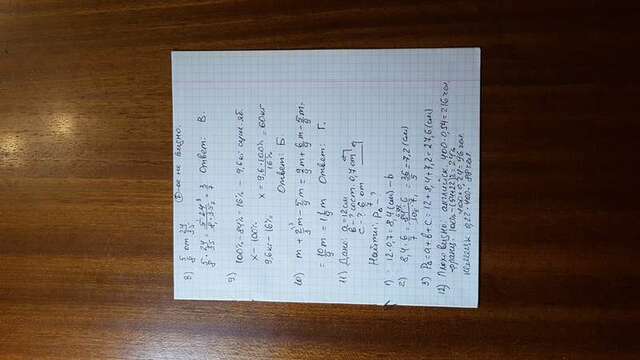 7-ое не видно.
8) 5/8 от 24/35
5/8 · 24/35 = 5·24³/8·35₇ = 3/7 Ответ: В.
9)
100% - 84% = 16% - 9,6кг суш. яб.
x - 100%
9,6кг - 16% x = 9,6·100%/16% = 60кг
Ответ: Б.
10) m + 2/3 m - 5/9 m = 9/9 m + 6/9 m - 5/9 m =
= 10/9 m = 1 1/9 m Ответ: Г.
11) Дано: a = 12см
b - ? сост. 0,7 от
c - ? 6/7 от
Найти: P△ - ?
1) 12·0,7 = 8,4 (см) - b
2) 8,4 · 6/7 = 84·6/10·7 = 36/5 = 7,2 (см)
3) P△ = a + b + c = 12 + 8,4 + 7,2 = 27,6 (см)
12) Плохо видно. английск. 400·0,54 = 216 чел.
франц. 100% - (54+22) = 24%
400·0,24 = 96 чел
немецк 0,22·400 = 88 чел